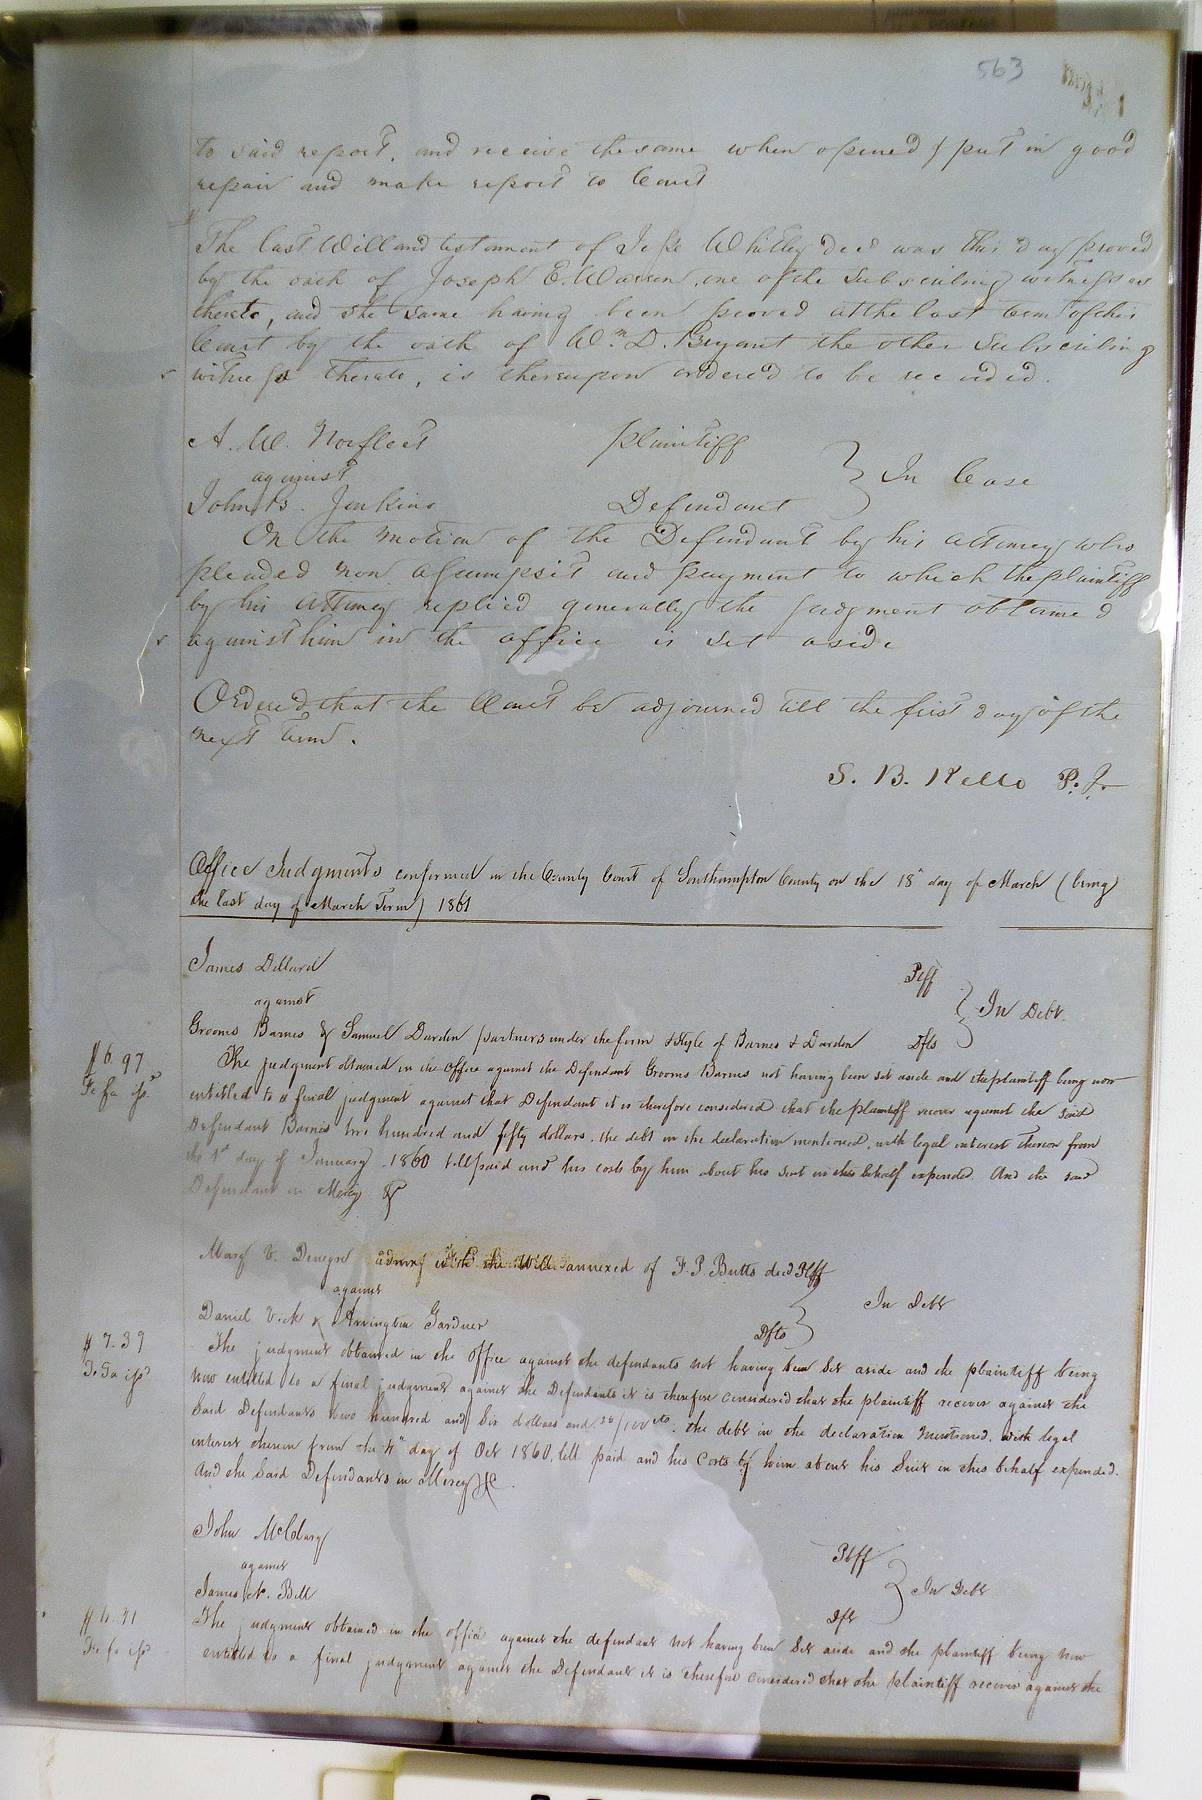 563
to said report, and receive the same when opened & put in good
repair and make report to Court
The last Will and testament of Jesse Whitley dec'd was this day proved
by the oath of Joseph E. Warren, one of the subscribing witnesses
thereto, and the same having been proved at the last term of this
Court by the oath of Wm. D. Bryant the other subscribing
witness thereto, is thereupon ordered to be recorded.
A. W. Norfleet plaintiff
against
In Case
John B. Jenkins Defendant
On the motion of the Defendant by his attorney who
pleaded non assumpsit and payment to which the plaintiff
by his attorney replied generally the judgment obtained
against him in the office is set aside
Ordered that the Court be adjourned till the first day of the
next term.
S. B. Kello P. J.
Office Judgments confirmed in the County Court of Southampton County on the 18" day of March (being
the last day of March Term) 1861
James Dillard Pltff
against
In Debt
Grooms Barnes & Samuel Darden partners under the firm & style of Barnes & Darden Dfts
$6.97
The judgment obtained in the Office against the Defendant Grooms Barnes not having been set aside and the plaintiff being now
Fi fa iss
entitled to a final judgment against that Defendant it is therefore considered that the plaintiff recover against the said
Defendant Barnes two hundred and fifty dollars, the debt in the declaration mentioned, with legal interest thereon from
the 1st day of January 1860 till paid and his costs by him about his suit in this behalf expended. And the said
Defendant in Mercy &
Mary V. admx with the Will annexed of F. P. Butts decd Pltff
against
In Debt
Daniel Vick & Arrington Gardner Dfts
$7.39
The judgment obtained in the office against the defendants not having been set aside and the plaintiff being
Fi Fa iss
now entitled to a final judgment against the Defendants it is therefore considered that the plaintiff recover against the
Said Defendants two hundred and Six dollars and /100 cts. the debt in the declaration mentioned. with legal
interest thereon from the 4" day of Oct 1860, till paid and his Costs by him about his Suit in this behalf expended.
And the Said Defendants in Mercy &c.
John McClary Pltff
against
In Debt
James N. Bell Dft
The judgment obtained in the office against the defendant not having been Set aside and the plaintiff being now
Fi fa iss
entitled to a final judgment against the Defendant it is therefore considered that the plaintiff recover against the